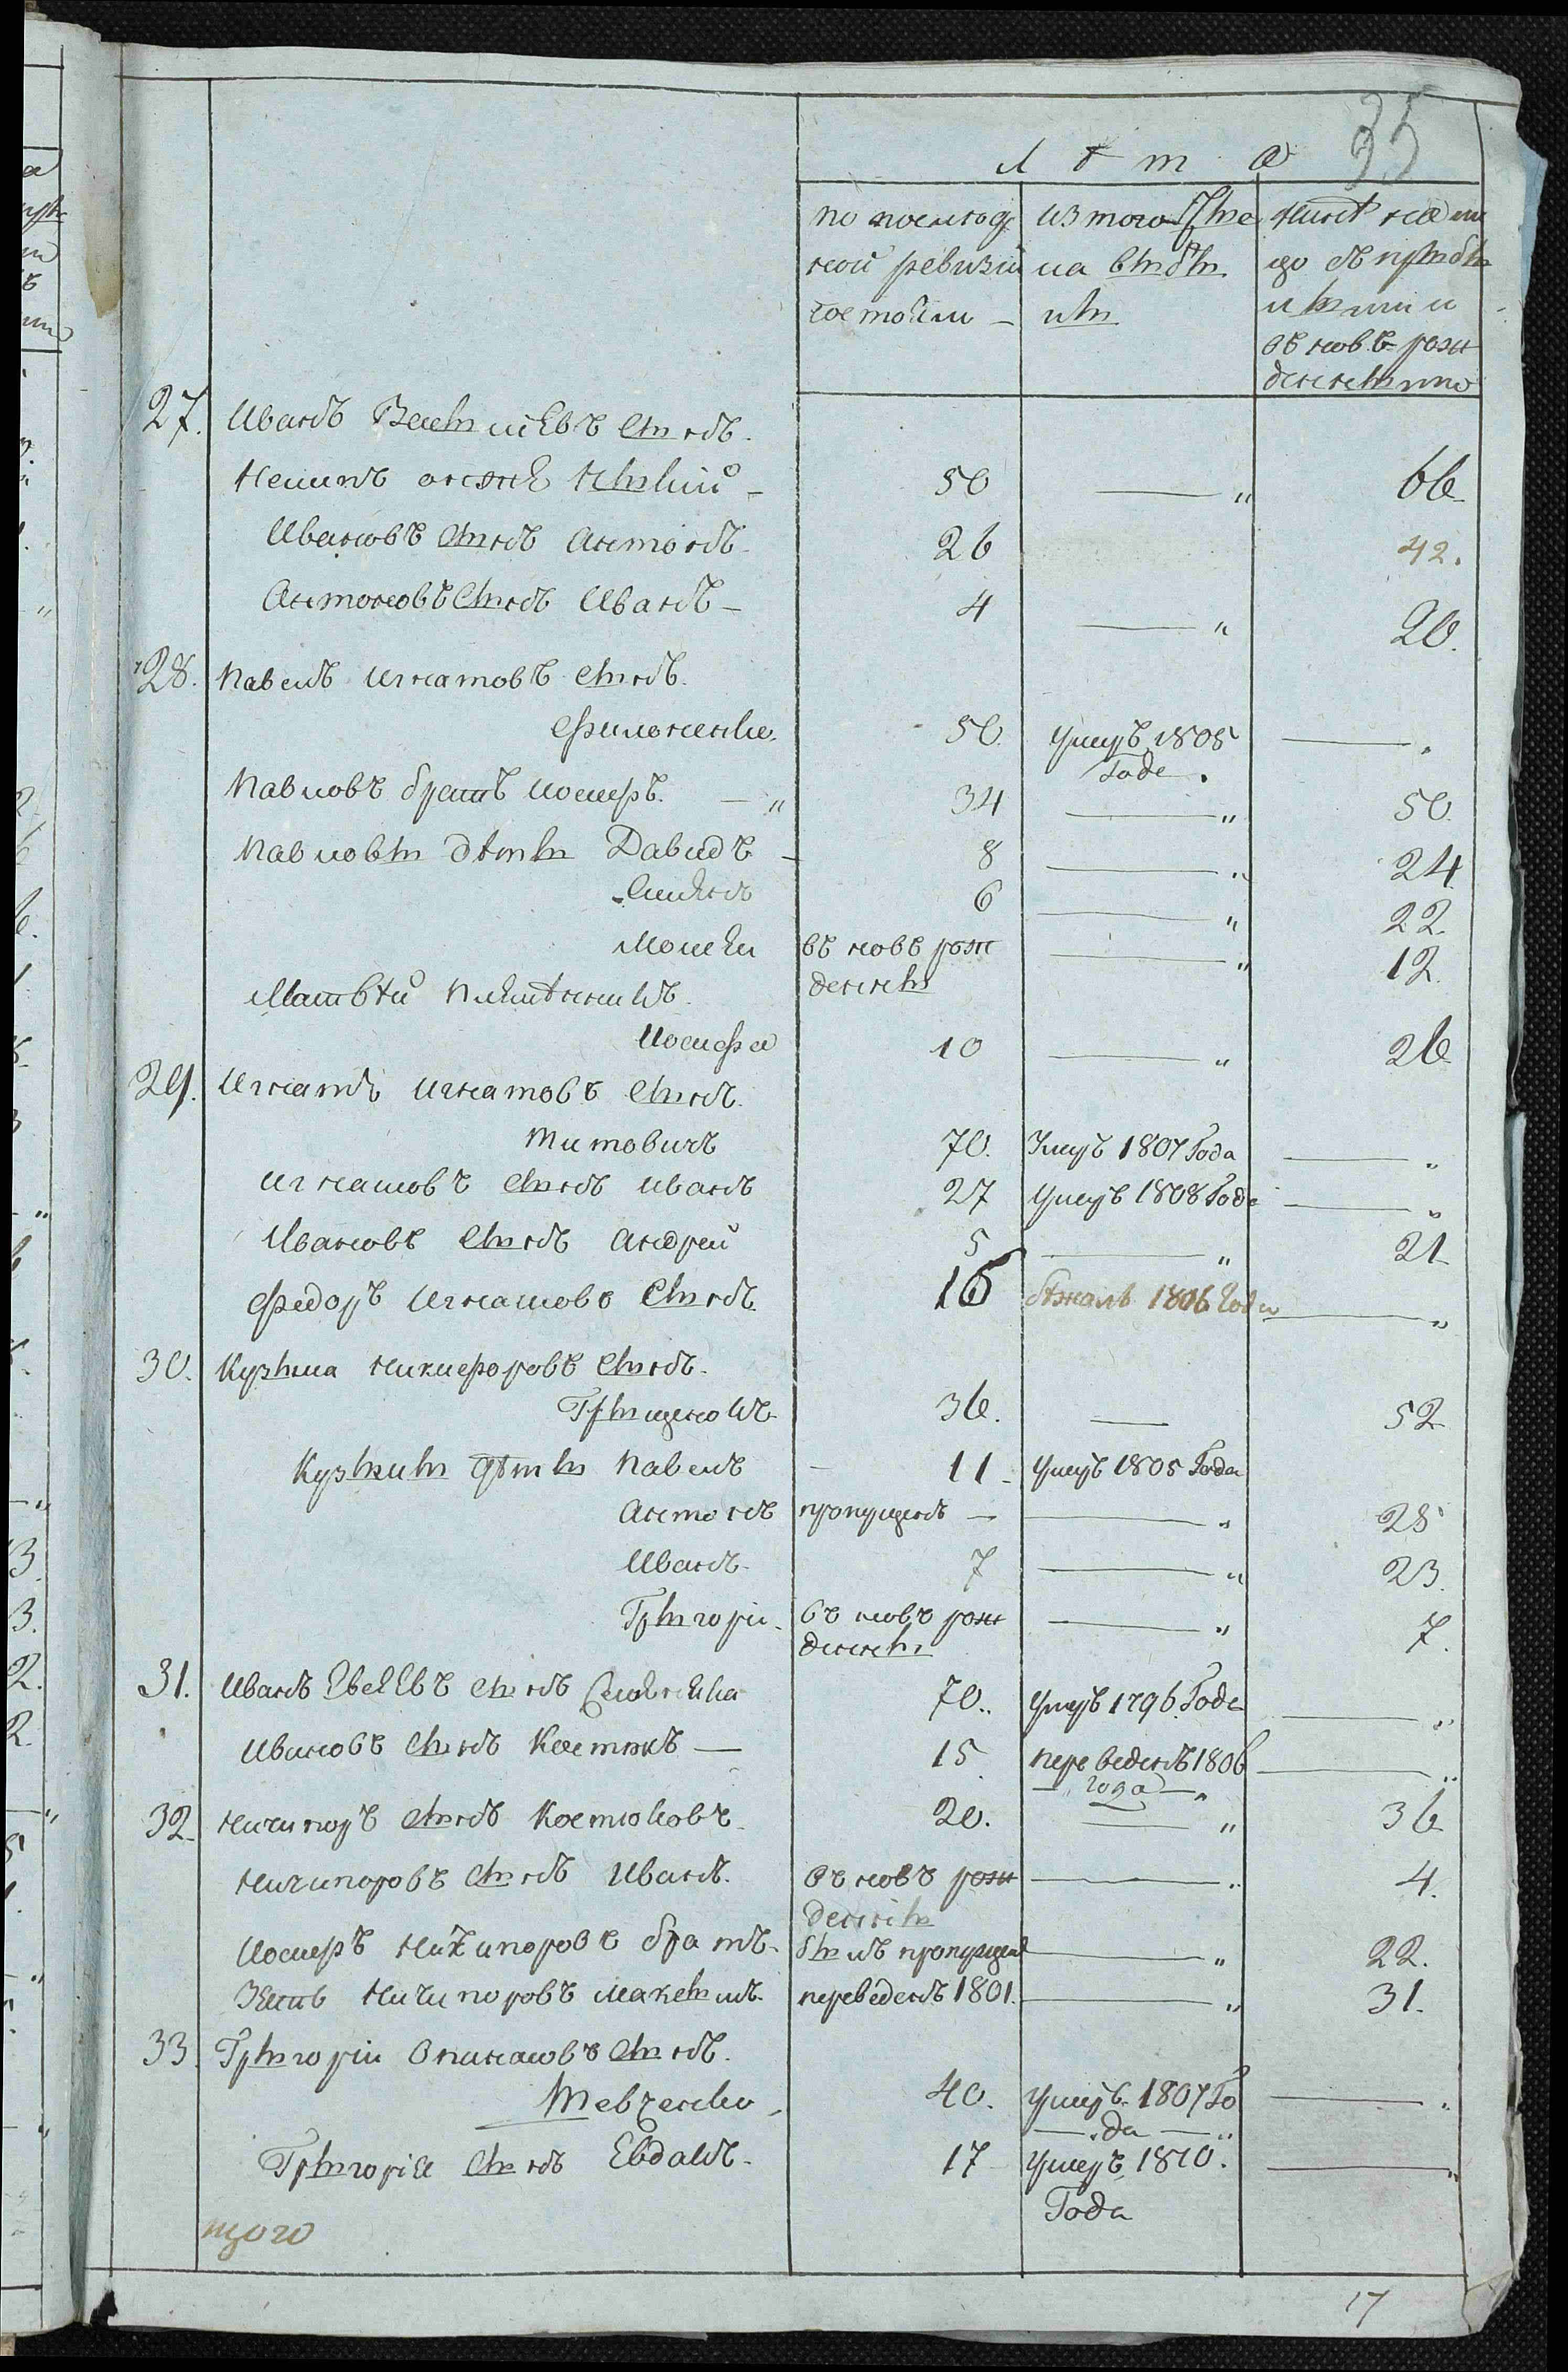 35
Лѣта
по послѣд изъ того числа нынѣ на ли
ней ревизіи ла выбы цо съ прибы
состояли — лы лыми и
въ новѣ рож
денными
27. Иванъ Василіевъ сынъ.
50 — " 66
Ивановъ сынъ Антонъ 26 42.
Антоновъ сынъ Иванъ — 4 — " 20.
28. Павелъ Игнатовъ сынъ.
Филоненко. 50. умеръ 1805 — "
года.
Павловъ братъ Иосифъ. — " 34 — " 50.
Павловы дѣты Давидъ — 8 — " 24
Симонъ 6 — " 22.
Мойсей въ новѣ рож — " 12.
денны
Матвѣй племѣнникъ
Иосифа 10 — " 26
29. Игнатъ Игнатовъ сынъ.
Титовичъ 70. Умеръ 1807 Года — "
Игнатовъ сынъ Иванъ 27 умеръ 1808 Года — "
Ивановъ сынъ Андрей 5 — " 21
Федоръ Игнатовъ сынъ 16 бѣжалъ 1806 Года — "
30. Кузьма Никифоровъ сынъ.
Грыщенокъ 36. — 52
Кузьмины дѣты Павелъ — 11 — умеръ 1805 Года
Антонъ пропущенъ — — " 28
Иванъ 7 — " 23.
Грыгорій. въ новѣ рож — " 7.
денны
31. Иванъ сынъ 70.. умеръ 1796 Года — "
Ивановъ сынъ Костюкъ — 15 переведенъ 1806 — "
— года — "
32. Ничипоръ сынъ Костюковъ. 20. — " 36
Ничипоровъ сынъ Иванъ. въ новѣ рож — " 4.
денны
Иосифъ Ничипоровъ братъ. былъ пропущен — " 22.
Зять Ничипоровъ Максымъ. переведенъ 1801. — " 31.
33. Грыгорій Опанасовъ сынъ.
Шевченко 40. умеръ 1807 Го — "
— да — "
Грыгорія сынъ Евдокъ 17 умеръ 1810. — "
Года
17